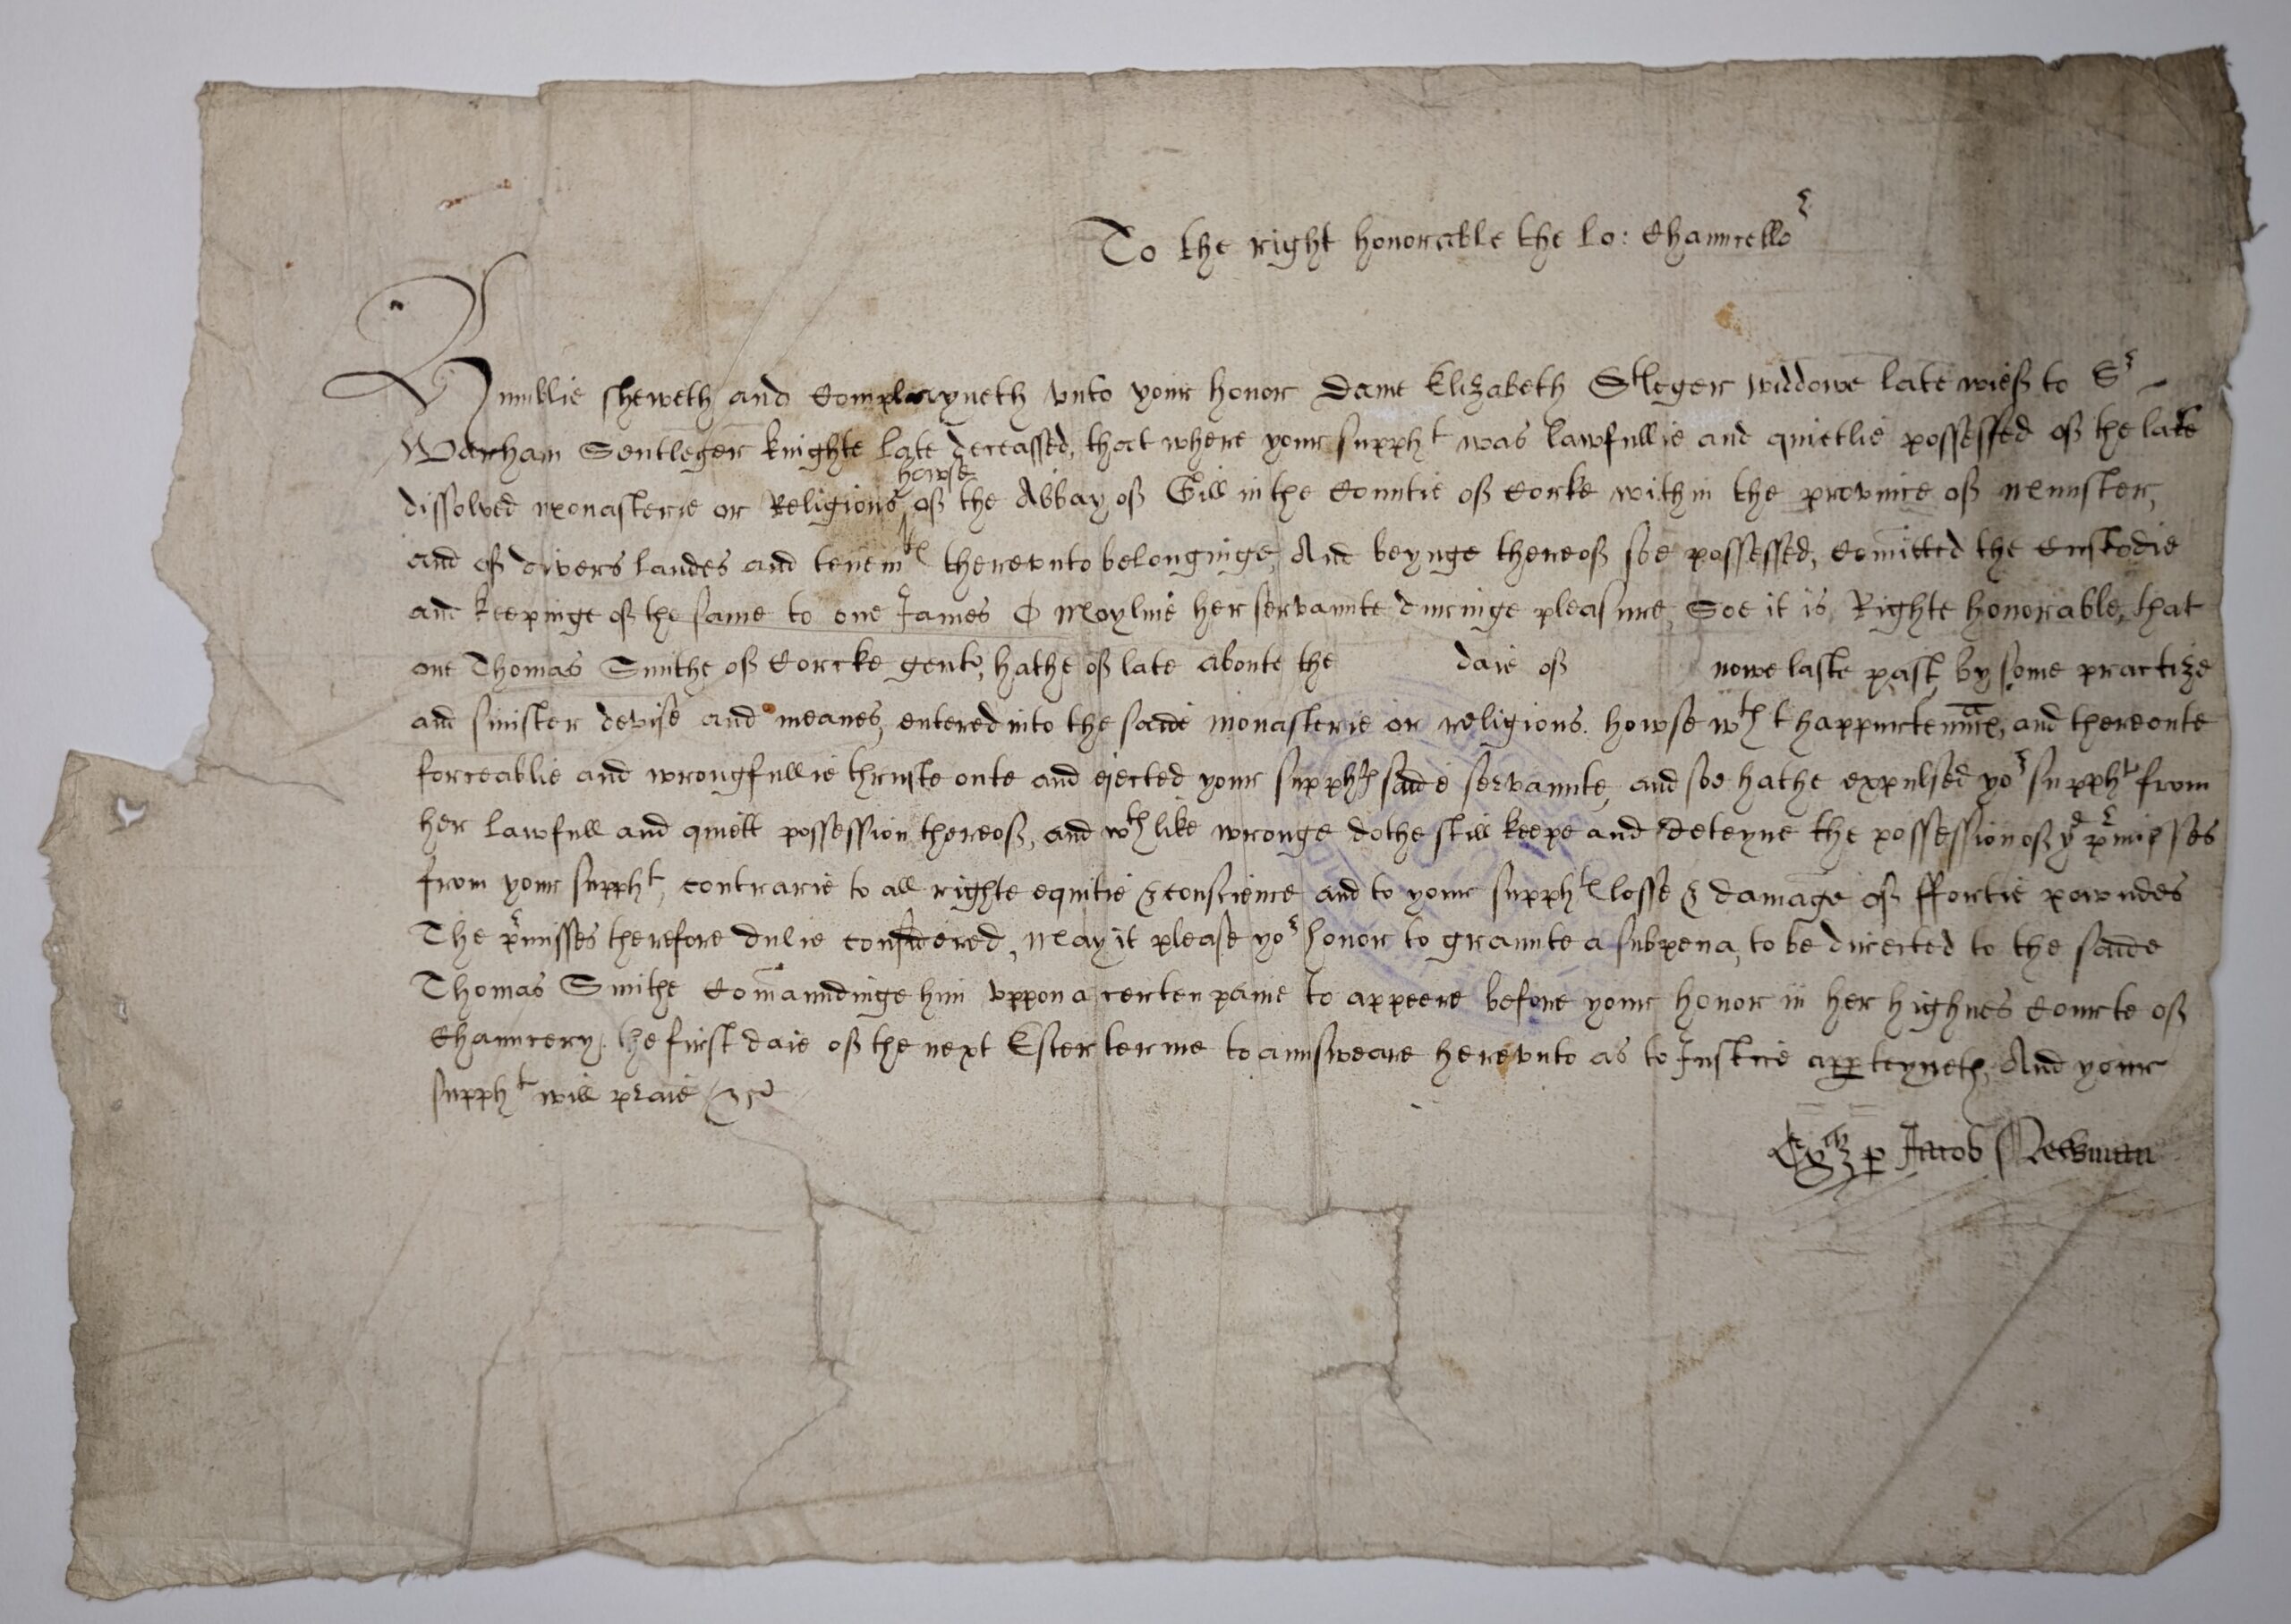 To the right honorable the lo: Chauncellor
Humblie sheweth and Complayneth vnto your honor Dame Elizabeth Stleger widdowe late wief to Sr
Warham Sentleger knighte late deceassed, that where your supplt was lawfullie and quietlie possessed of the late
dissolved monasterie or Religious howse of the Abbay of Gill in the Countie of Corke within the province of Mounster,
and of divers landes and tenemtes therevnto belonginge, And beynge thereof soe possessed, Comitted the Custodie
and keepinge of the same to one James O Moylnie her servaunte duringe pleasure, Soe it is Righte honorable, that
one Thomas Smithe of Corcke gent, hathe of late aboute the daie of nowe laste past, by some practize
and sinister devise and meanes, entered into the saide monasterie or religious howse wth thappurtennces, and thereoute
forceablie and wrongfullie thruste oute and ejected your supplts saide servaunte, and soe hathe expulsed yor supplt from
her lawfull and quiett possession thereof, and wth like wronge dothe still keepe and deteyne the possession of ye pmisses
from your supplt, contrarie to all righte equitie & conscience and to your supplts losse & damage of ffortie powndes
The pmisses therefore dulie considered, May it please yor honor to graunte a subpena, to be directed to the saide
Thomas Smithe Comaundinge him vppon a certen paine to appeere before your honor in her highnes Courte of
Chauncery, the first daie of the next Ester terme to aunsweare herevnto as to Justice appteyneth, And your
supplt will praie &c
p Jacob Newman